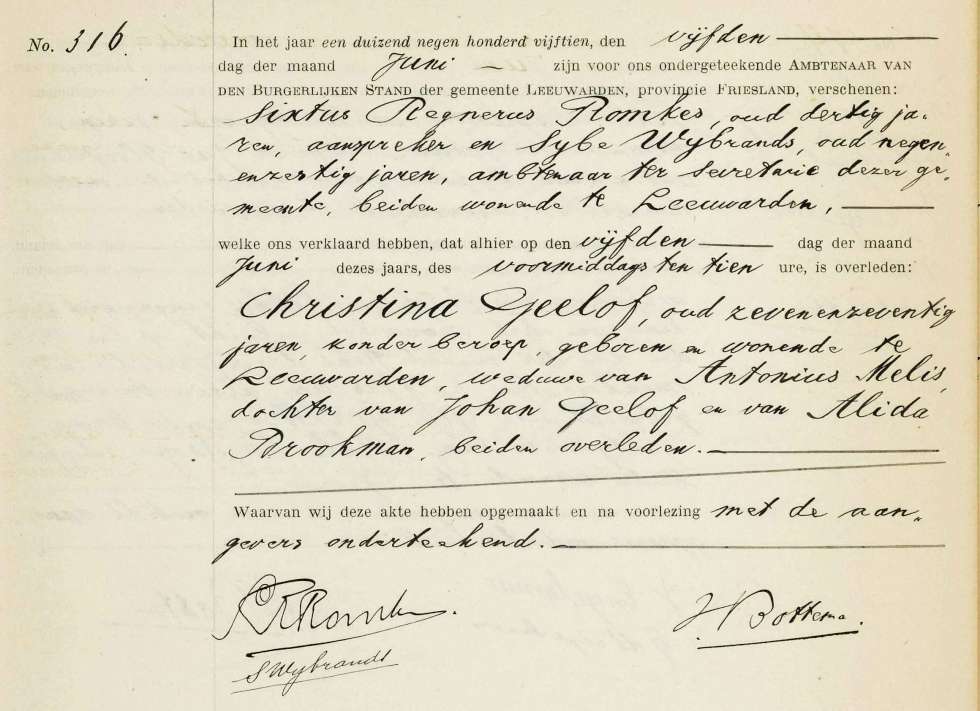 No. 316.
In het jaar een duizend negen honderd vijftien, den vijfden
dag der maand Juni zijn voor ons ondergeteekende AMBTENAAR VAN
DEN BURGERLIJKEN STAND der gemeente LEEUWARDEN, provincie FRIESLAND, verschenen:
Sixtus Regnerus Romkes, oud dertig ja-
ren, aanspreker en Sybe Wybrands, oud negen-
enzestig jaren, ambtenaar ter secretarie dezer ge-
meente, beiden wonende te Leeuwarden,
welke ons verklaard hebben, dat alhier op den vijfden dag der maand
Juni dezes jaars, des voormiddags ten tien ure, is overleden:
Christina Geelof, oud zevenenzeventig
jaren, zonder beroep, geboren en wonende te
Leeuwarden, weduwe van Antonius Melis,
dochter van Johan Geelof en van Alida
Brookman, beiden overleden.
Waarvan wij deze akte hebben opgemaakt en na voorlezing met de aan-
gevers onderteekend.
S R Romkes.
S Wybrands
H Bottema.